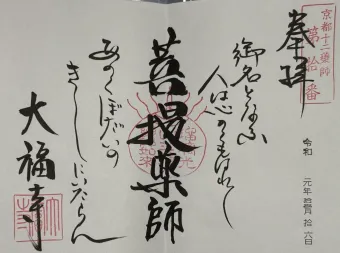 奉拝
京都十二薬師
第拾番
令和 元年 拾月 拾六日
御名となふ
人は心の
菩提薬師
あのくぼだいの
きしにいたらん
大福寺